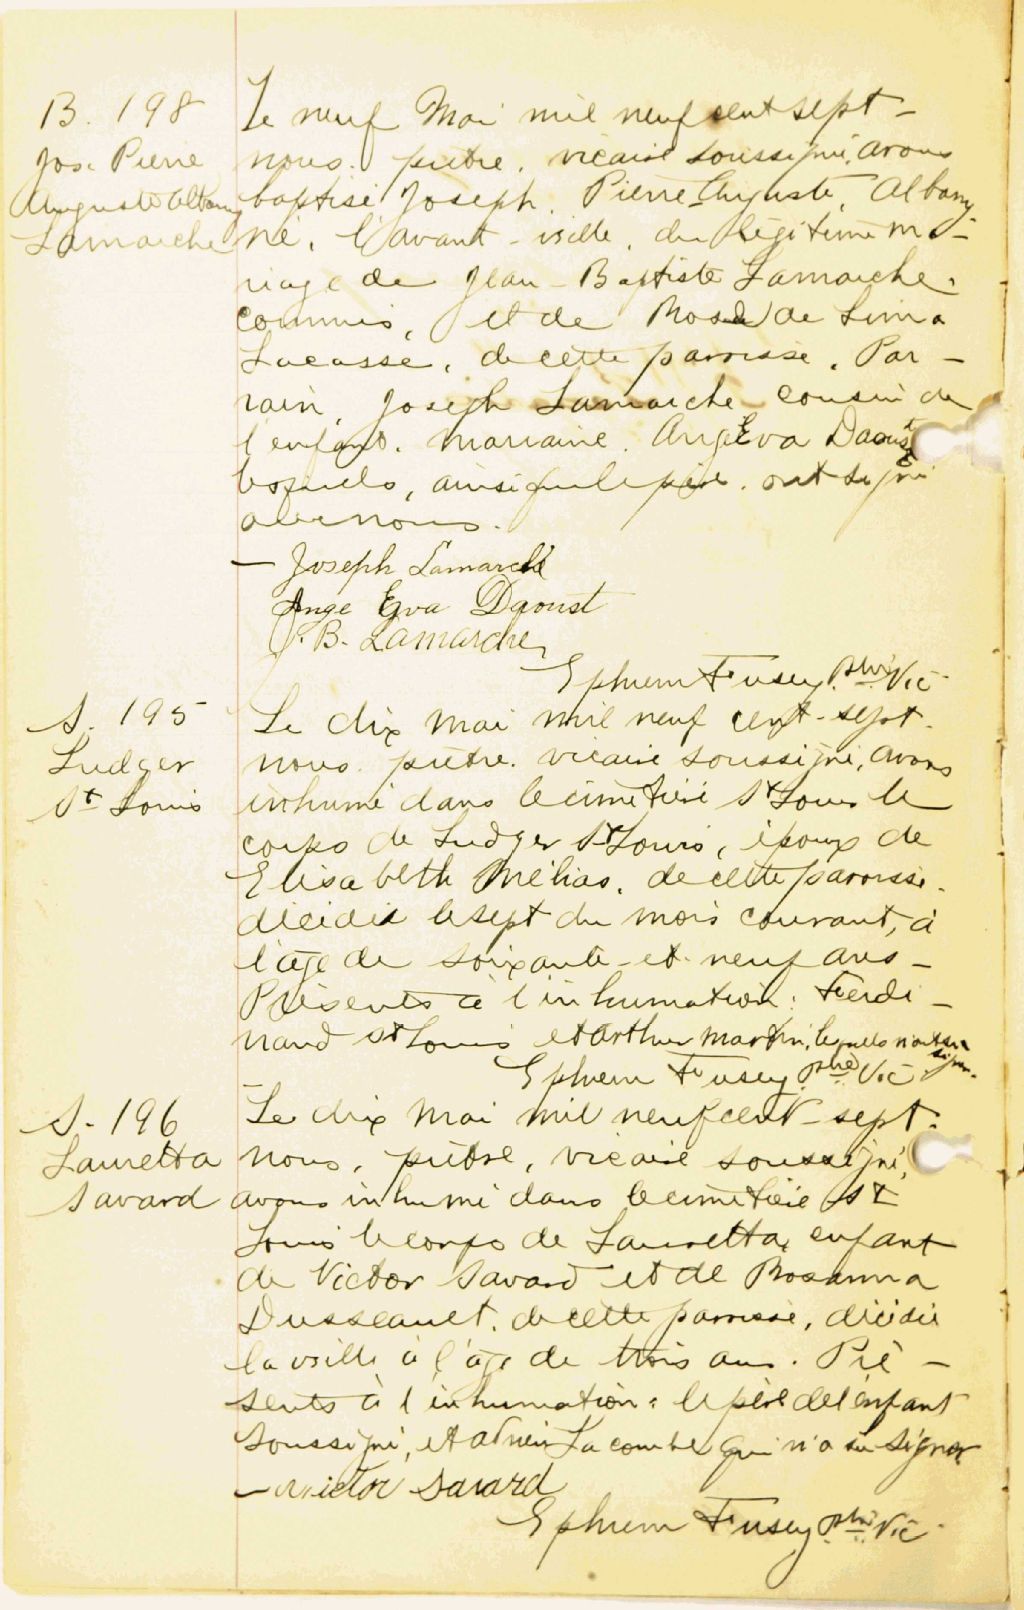 B. 198
Jos. Pierre
Auguste Albany
Lamarche
Le neuf Mai mil neuf cent sept -
nous. prêtre, vicaire soussigné, avons
baptisé Joseph, Pierre-Auguste, Albany,
né, l'avant-veille, du légitime ma-
riage de Jean-Baptiste Lamarche,
commis, et de Rose de Lima
Lacasse, de cette paroisse. Par-
rain, Joseph Lamarche cousin de
l'enfant. marraine. Ange Eva Daoust
lesquels, ainsi que le père, ont signé
avec nous.
- Joseph Lamarche
Ange Eva Daoust
J. B. Lamarche
Ephrem Fusey ptre Vic
S. 195
Ludger
St Louis
Le dix mai mil neuf cent-sept.
nous. prêtre. vicaire soussigné, avons
inhumé dans le cimetière St Louis le
corps de Ludger St Louis, époux de
Elisabeth Mélias, de cette paroisse.
décédé le sept du mois courant, à
l'âge de soixante-et-neuf ans -
Présents à l'inhumation: Ferdi-
nand St Louis et Arthur Martin, lesquels n'ont su
signer.
Ephrem Fusey ptre Vic
S. 196
Lauretta
Savard
Le dix mai mil neuf cent-sept.
nous, prêtre, vicaire soussigné,
avons inhumé dans le cimetière St
Louis le corps de Lauretta, enfant
de Victor Savard et de Rosanna
Dusseault, de cette paroisse, décédée
la veille à l'âge de trois ans. Pré-
sents à l'inhumation: le père de l'enfant
soussigné, et Lacombe qui n'a su signer
- Victor Savard
Ephrem Fusey ptre Vic